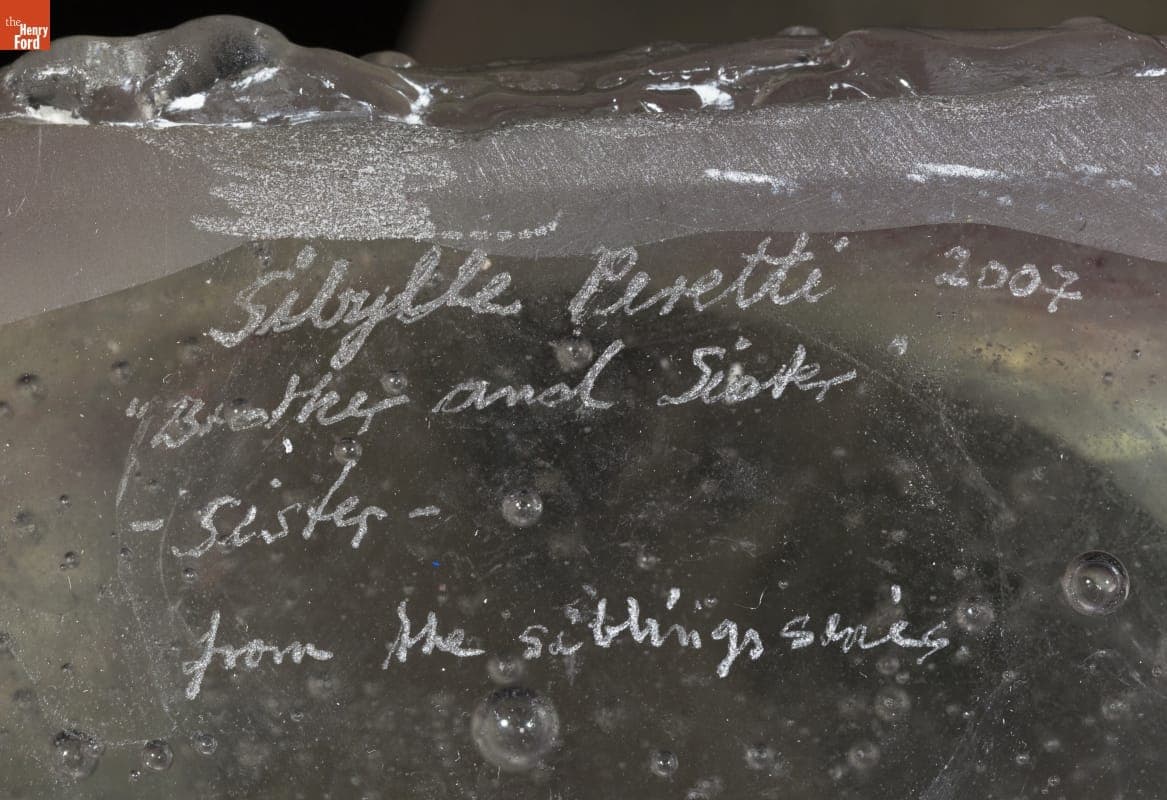 the
Henry
Ford
Sibylle Peretti 2007
"Brother and Sister"
- Sister -
from the siblings series